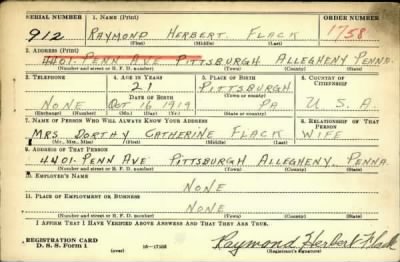 SERIAL NUMBER 1. NAME (Print) ORDER NUMBER
912 RAYMOND HERBERT. FLACK 1758
(First) (Middle) (Last)
2. ADDRESS (Print)
4401. PENN AVE PITTSBURGH ALLEGHENY PENNA.
(Number and street or R. F. D. number) (Town) (County) (State)
3. TELEPHONE 4. AGE IN YEARS 5. PLACE OF BIRTH 6. COUNTRY OF CITIZENSHIP
21 PITTSBURGH
DATE OF BIRTH (Town or county)
NONE OCT 16 1919 PA U.S.A.
(Exchange) (Number) (Mo.) (Day) (Yr.) (State or country)
7. NAME OF PERSON WHO WILL ALWAYS KNOW YOUR ADDRESS 8. RELATIONSHIP OF THAT PERSON
MRS DORTHY CATHERINE FLACK WIFE
(Mr., Mrs., Miss) (First) (Middle) (Last)
9. ADDRESS OF THAT PERSON
4401-PENN AVE PITTSBURGH ALLEGHENY, PENNA
(Number and street or R. F. D. number) (Town) (County) (State)
10. EMPLOYER'S NAME
NONE
11. PLACE OF EMPLOYMENT OR BUSINESS
NONE
(Number and street or R. F. D. number) (Town) (County) (State)
I AFFIRM THAT I HAVE VERIFIED ABOVE ANSWERS AND THAT THEY ARE TRUE.
REGISTRATION CARD
D. S. S. Form 1 (over) 16—17105 Raymond Herbert Flack
(Registrant's signature)